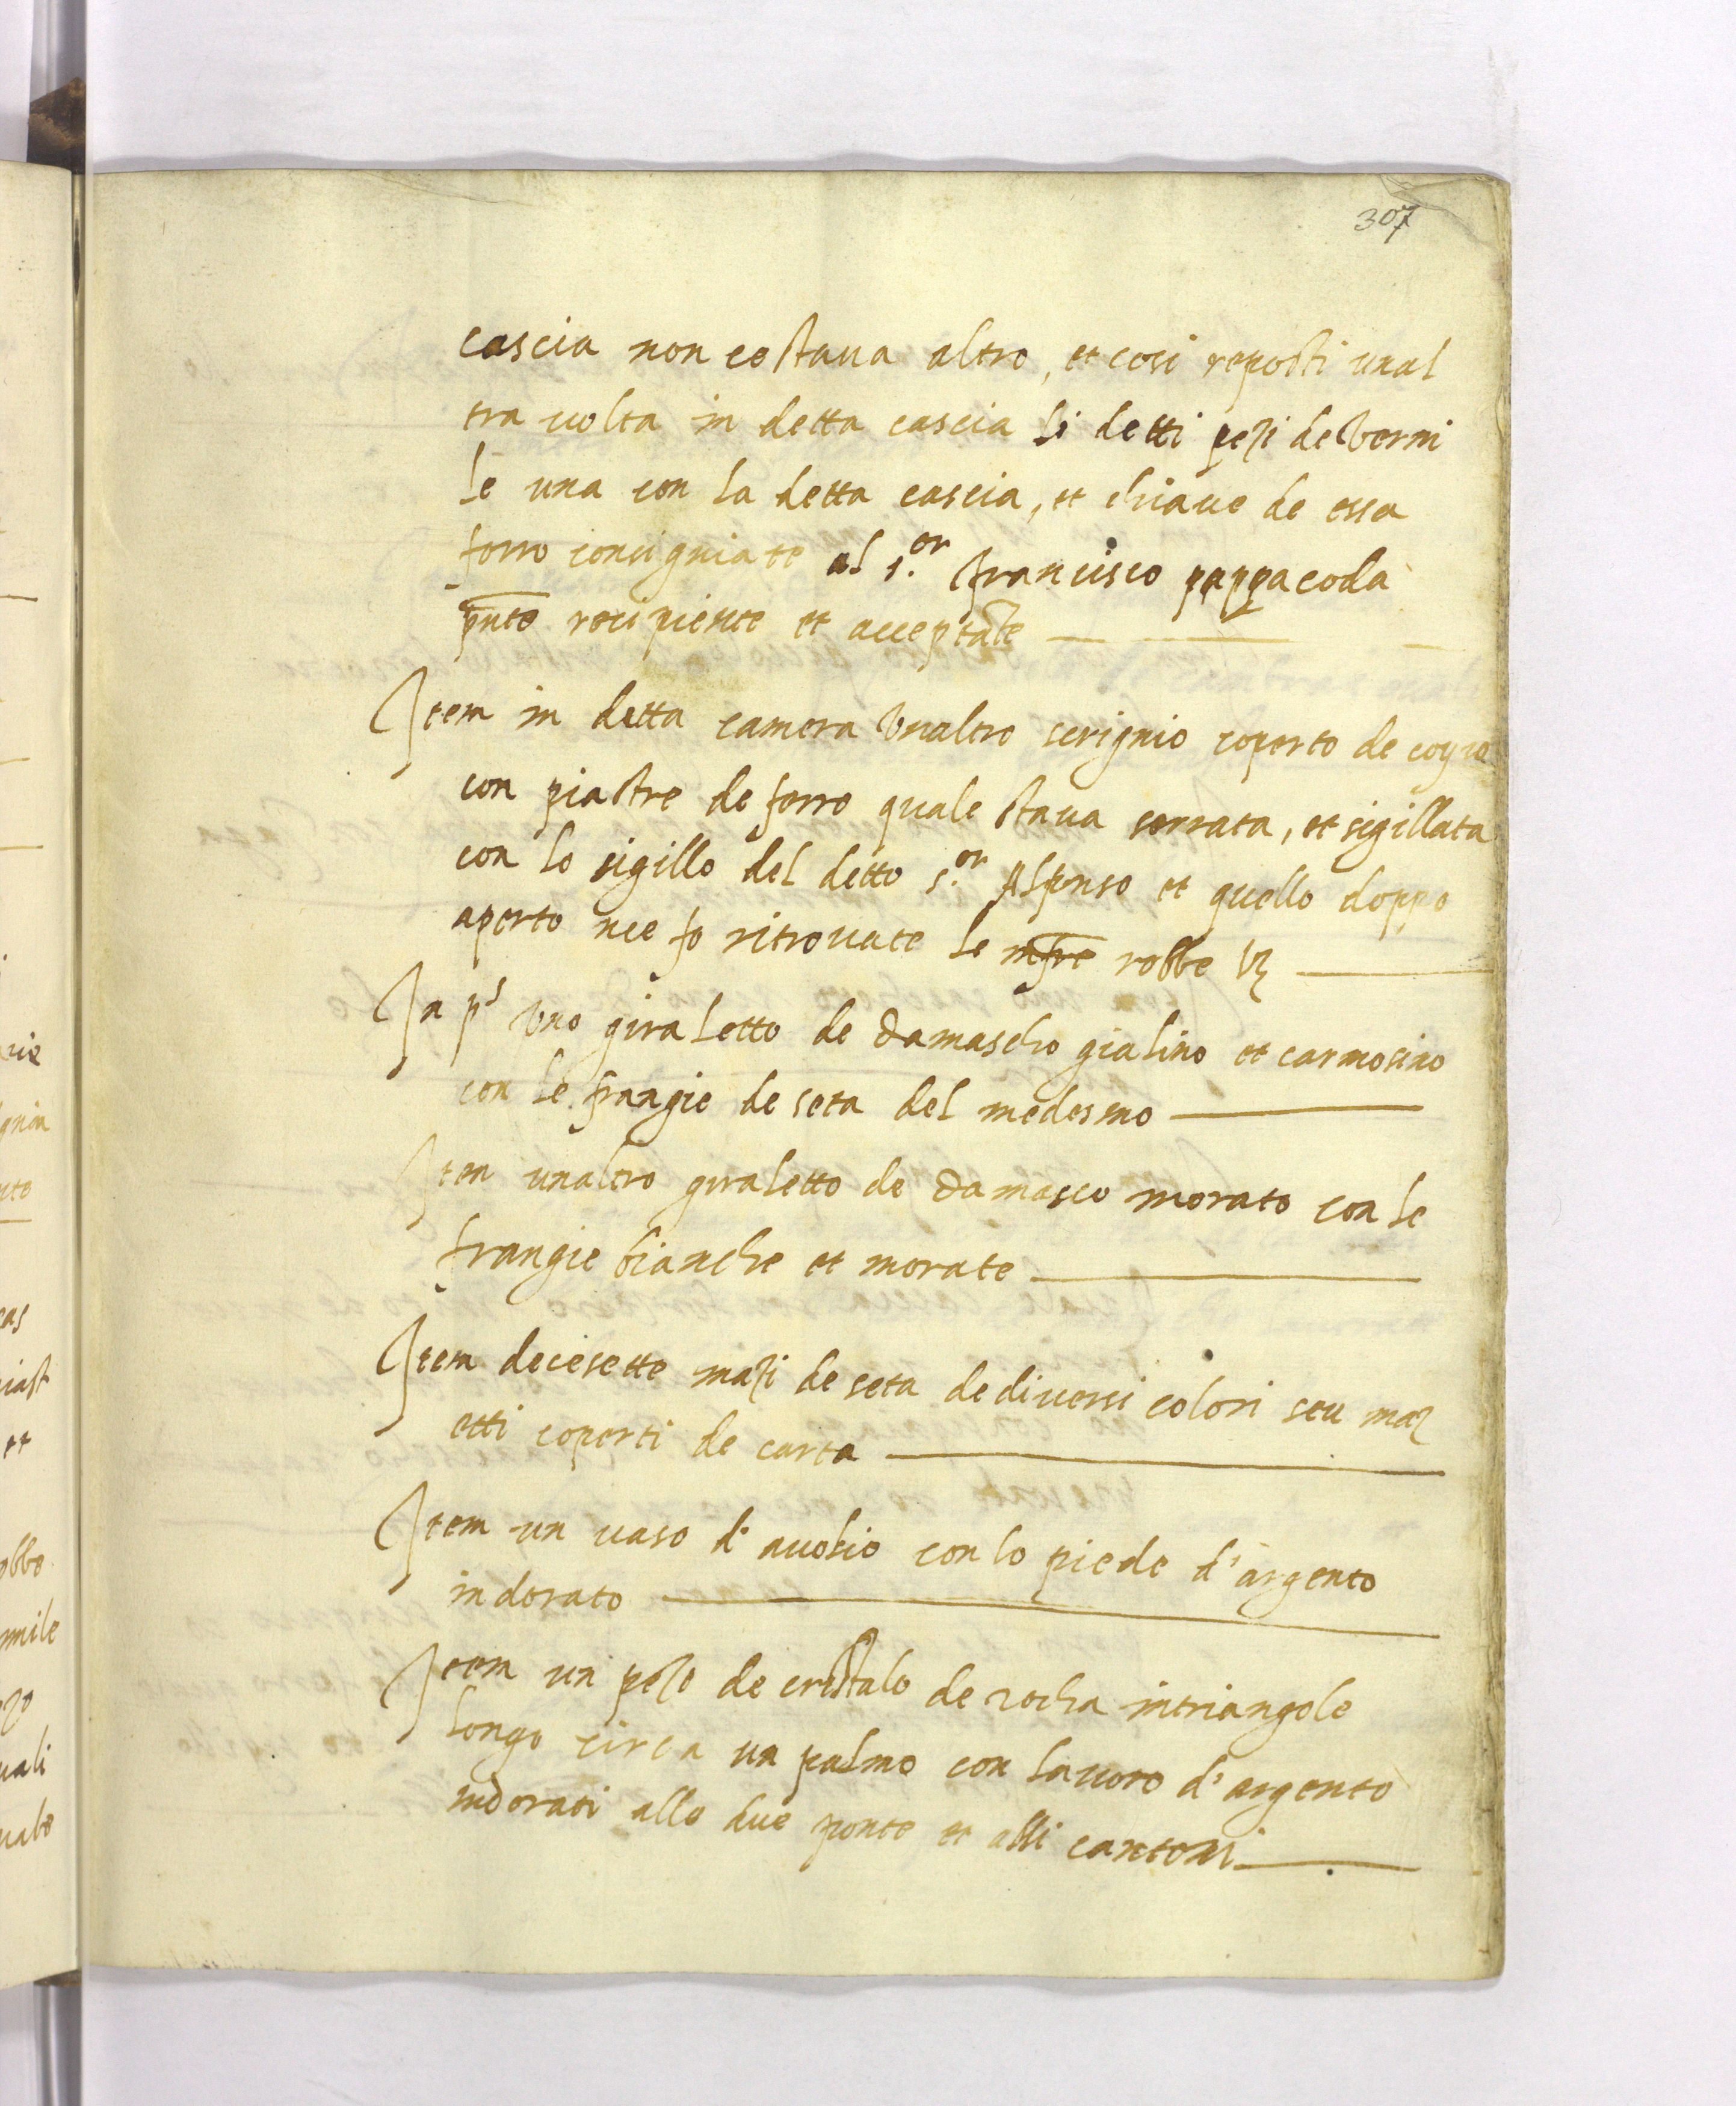 307
cascia non costaua altro, et cosi reposti unal
tra uolta in detta cascia li detti pezi de Vermi
le una con la detta cascia, et chiaue de essa
forno consigniate al s.or francisco pappacoda
pnte recipiente et acceptate
Item in detta camera Vnaltro scrignio coperto de coyro
con piastre de ferro quale staua serrata, et sigillata
con lo sigillo del detto s.or Alfonso et quello doppo
aperto nce fo ritrouate le infre robbe Vz
In ps Vno giraletto de Damascho gialino et carmosino
con le frangie de seta del medesmo
Item unaltro giraletto de Damasco morato con le
frangie bianche et morate
Item decesette mazi de seta de diuersi colori seu maz
etti coperti de carta
Item un uaso d'auolio con lo piede d'argento
indorato
Item un pezo de cristalo de rocha intriangole
longo circa un palmo con lauoro d'argento
indorati alle due ponte et alli cantoni